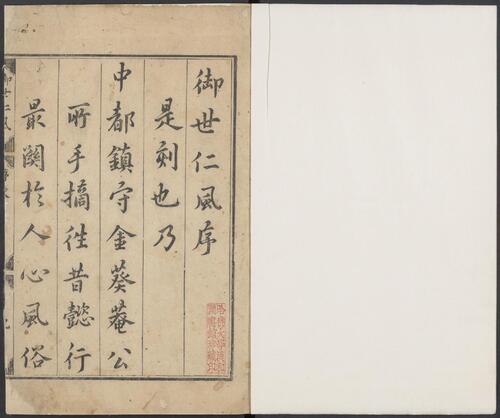 御世仁風序
是刻也乃
中都鎮守金葵菴公
所手摘徃昔懿行
最関於人心風俗
御世仁風